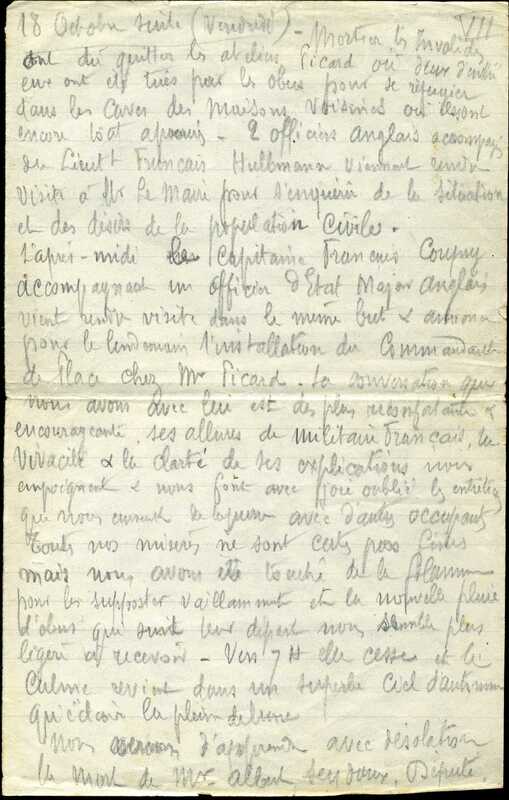 VII
18 Octobre suite (Vendredi) - Mortier les Invalides
ont dû quitter les ateliers Picard où deux d'entre
eux ont été tués par les obus pour se réfugier
dans les caves des maisons voisines où ils sont
encore tout apeurés - 2 officiers anglais accompagnés
du Lieutt Français Hullmann viennent rendre
visite à Mr Le Maire pour s'enquérir de la situation
et des désirs de la population civile.
L'après-midi le capitaine Français Cougny
accompagnant un officier d'Etat Major anglais
vient rendre visite dans le même but & annonce
pour le lendemain l'installation du Commandant
de Place chez Mr Picard. La conversation que
nous avons avec lui est des plus réconfortante &
encourageante, ses allures de militaire Français, la
vivacité & la clarté de ses explications nous
empoignent & nous font avec joie oublier les entretiens
que nous eumes avec d'autres occupants
Toutes nos misères ne sont certes pas finies
mais nous avons été touché de la flamme
pour les supporter vaillamment et la nouvelle pluie
d'obus qui suit leur départ nous semble plus
légère à recevoir - Vers 7 H elle cesse et le
calme revient dans un superbe ciel d'automne
qu'éclaire la pleine lune
Nous venons d'apprendre avec désolation
la mort de Mr Albert Seydoux, Député,